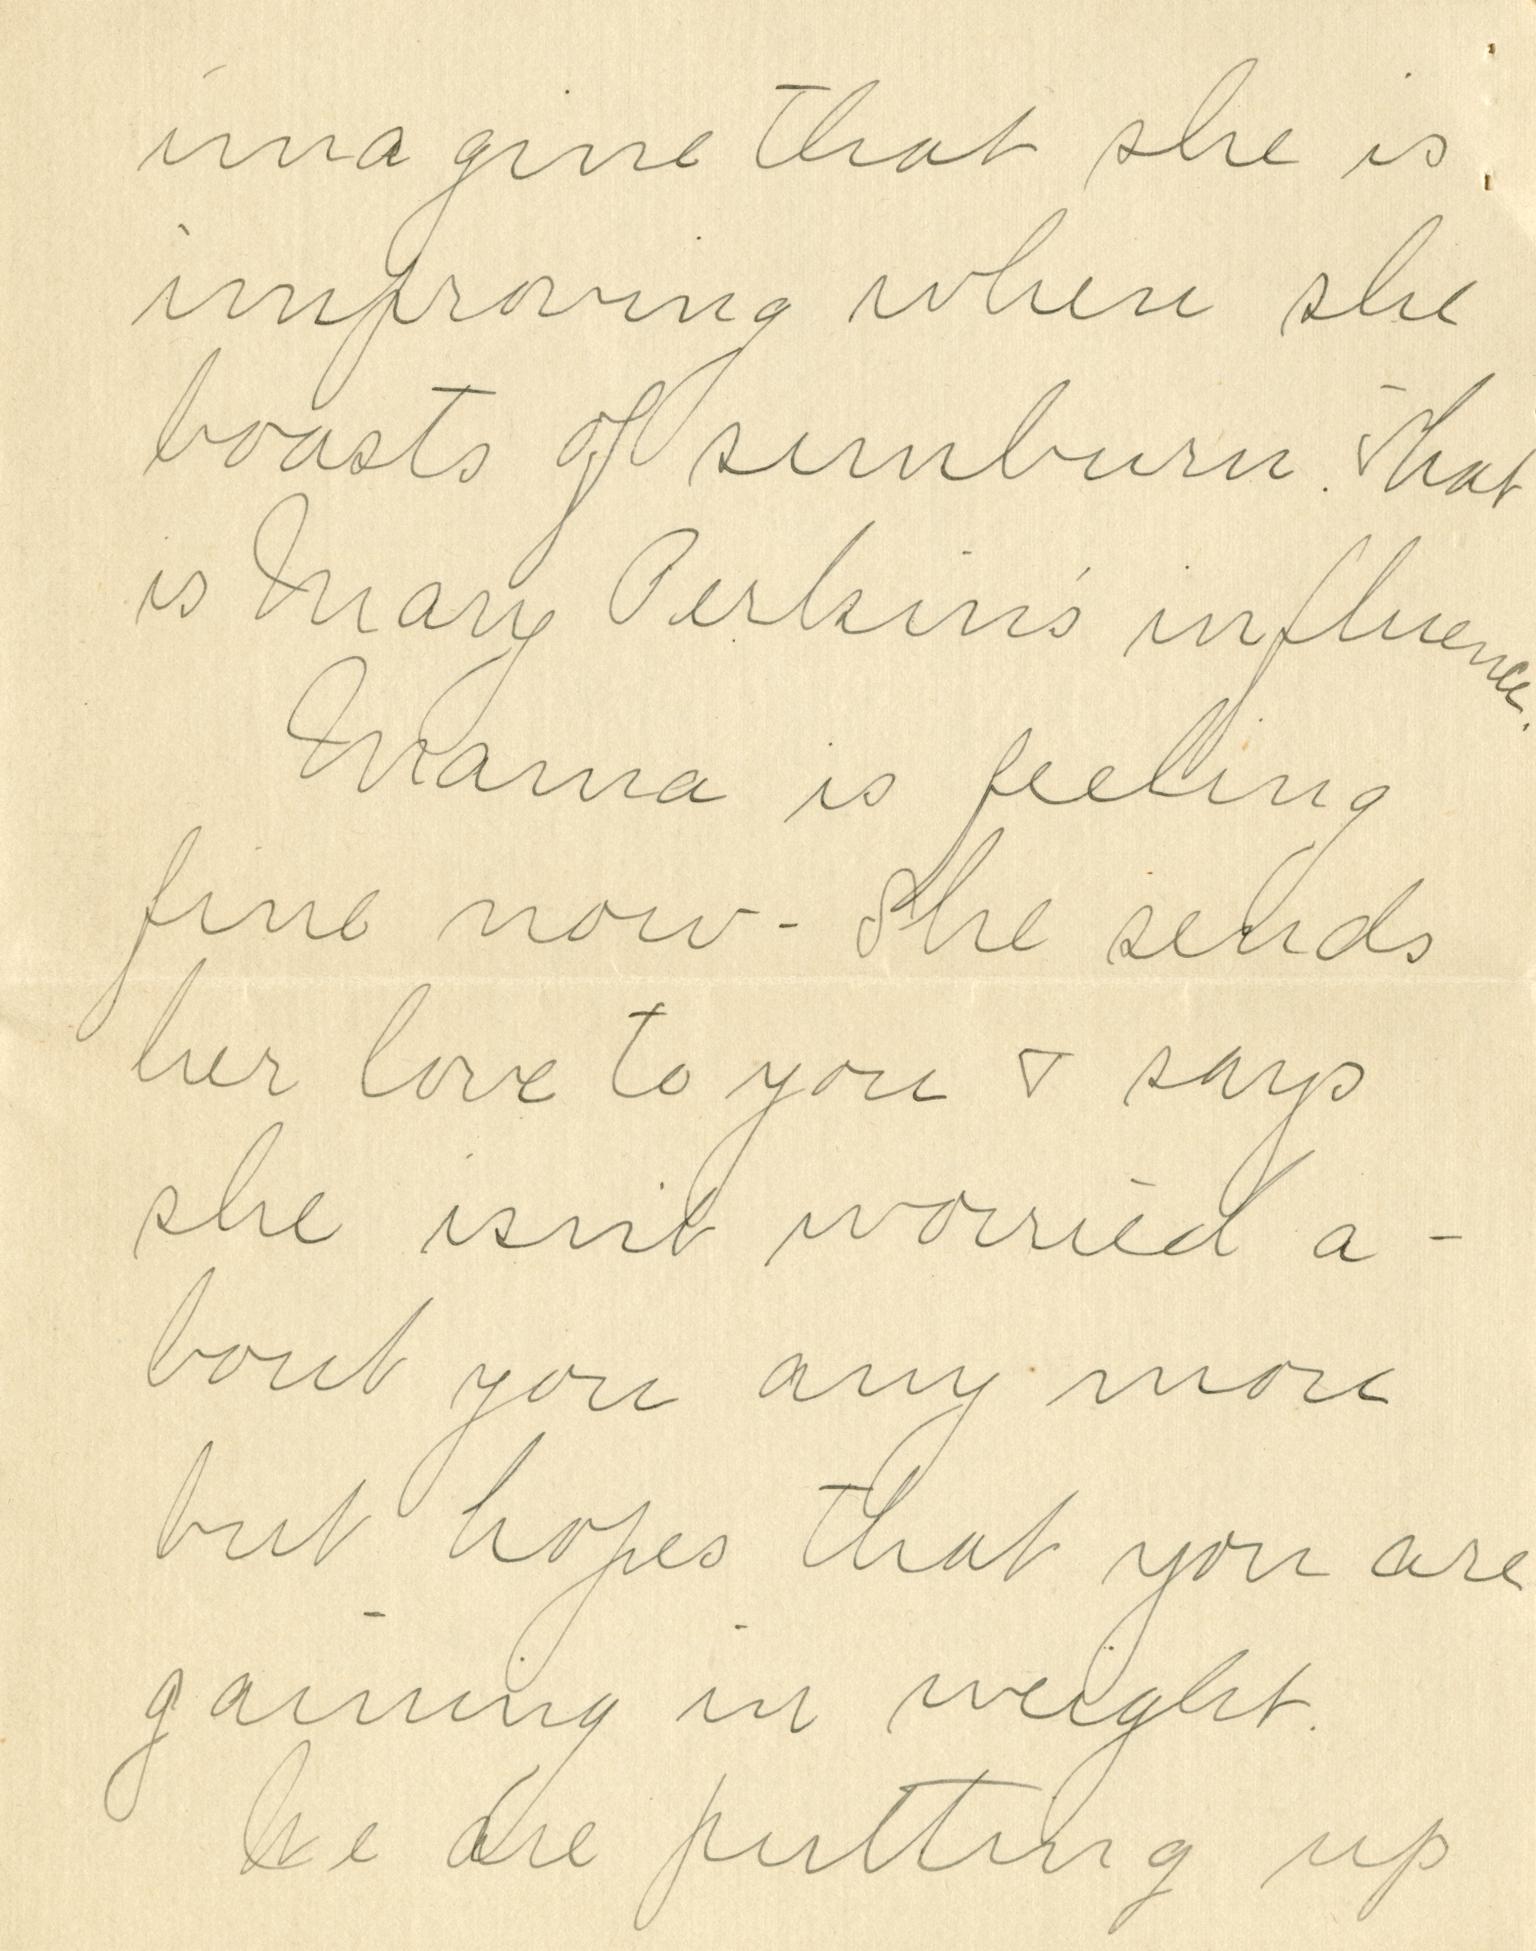 imagine that she is
improving when she
boasts of sunburn. That
is Mary Perkin's influence.
Mama is feeling
fine now - She sends
her love to you & says
she isn't worried a -
bout you any more
but hopes that you are
gaining in weight.
We are putting up